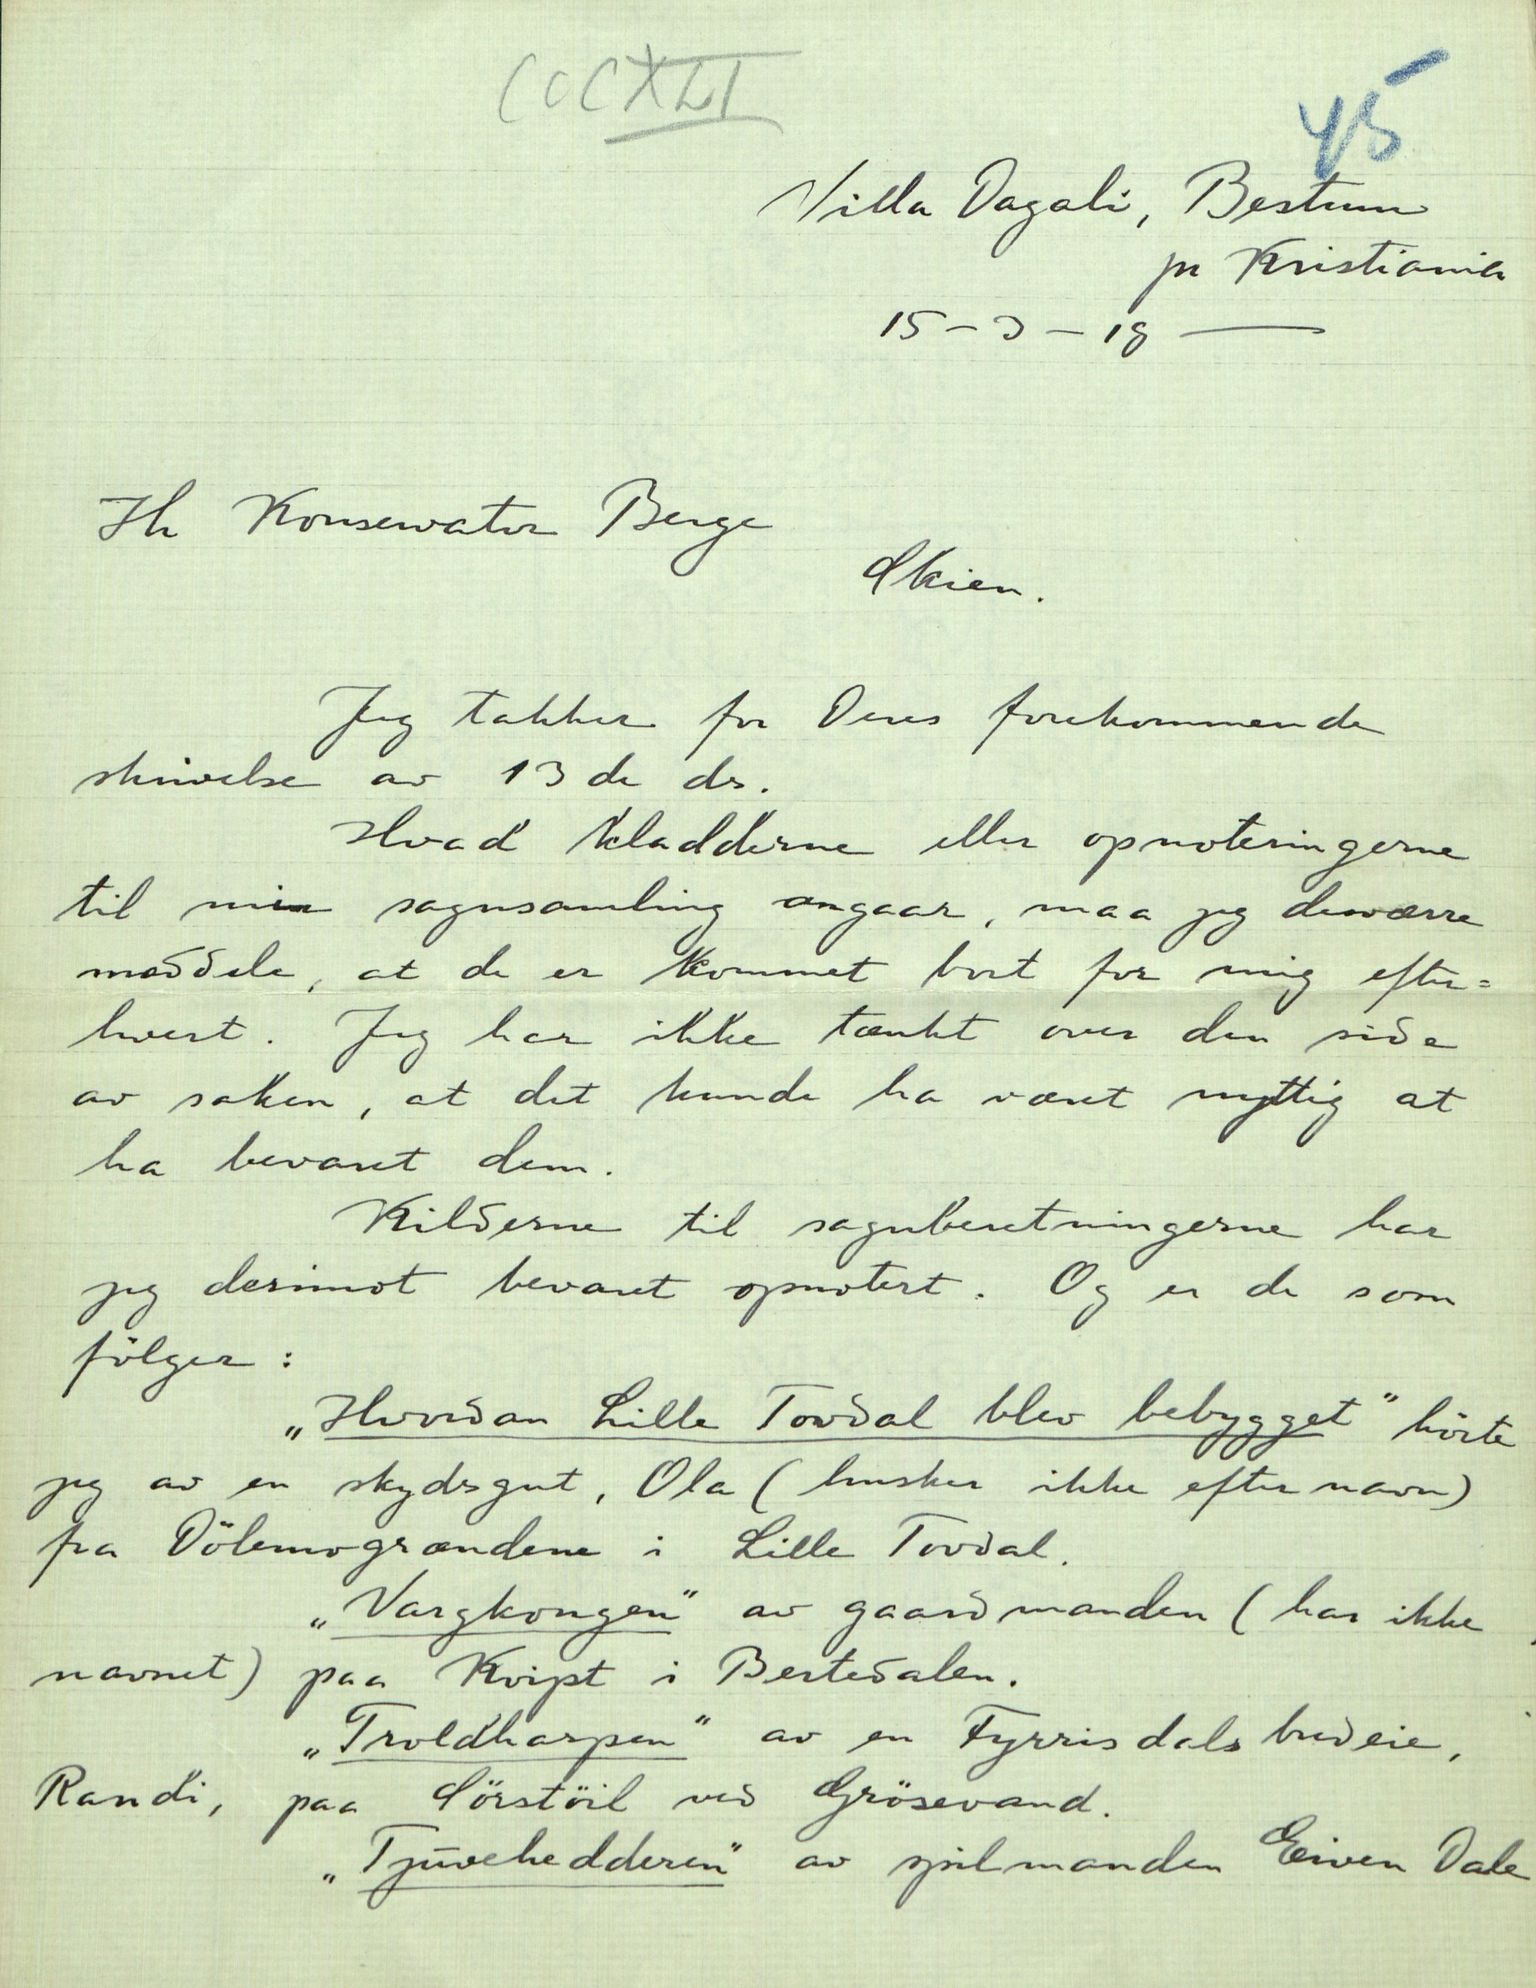 CCCXLI
45
Villa Dagali, Bestum
pr Kristiania
15 – 3 – 18 —
Hr Konservator Berge
Skien.
Jeg takker for Deres forekommende
skrivelse av 13 de ds.
Hvad kladderne eller opnoteringerne
til min sagnsamling angaar, maa jeg desværre
meddele, at de er kommet bort for mig efter=
hvert. Jeg har ikke tænkt over den side
av saken, at det kunde ha været nyttig at
ha bevaret dem.
Kilderne til sagnberetningerne har
jeg derimot bevaret opnotert. Og er de som
følger:
„Hvordan Lille Tovdal blev bebygget" hørte
jeg av en skydsgut, Ola (husker ikke efternavn)
fra Dölemogrændene i Lille Tovdal.
„Vargkongen" av gaardmanden (har ikke
navnet) paa Kvipt i Bestedalen.
„Troldharpen" av en Fyrrisdals budeie,
Randi, paa Sörstöil ved Grösevand.
„Tjuvehedderen" av spilmanden Eiven Dale